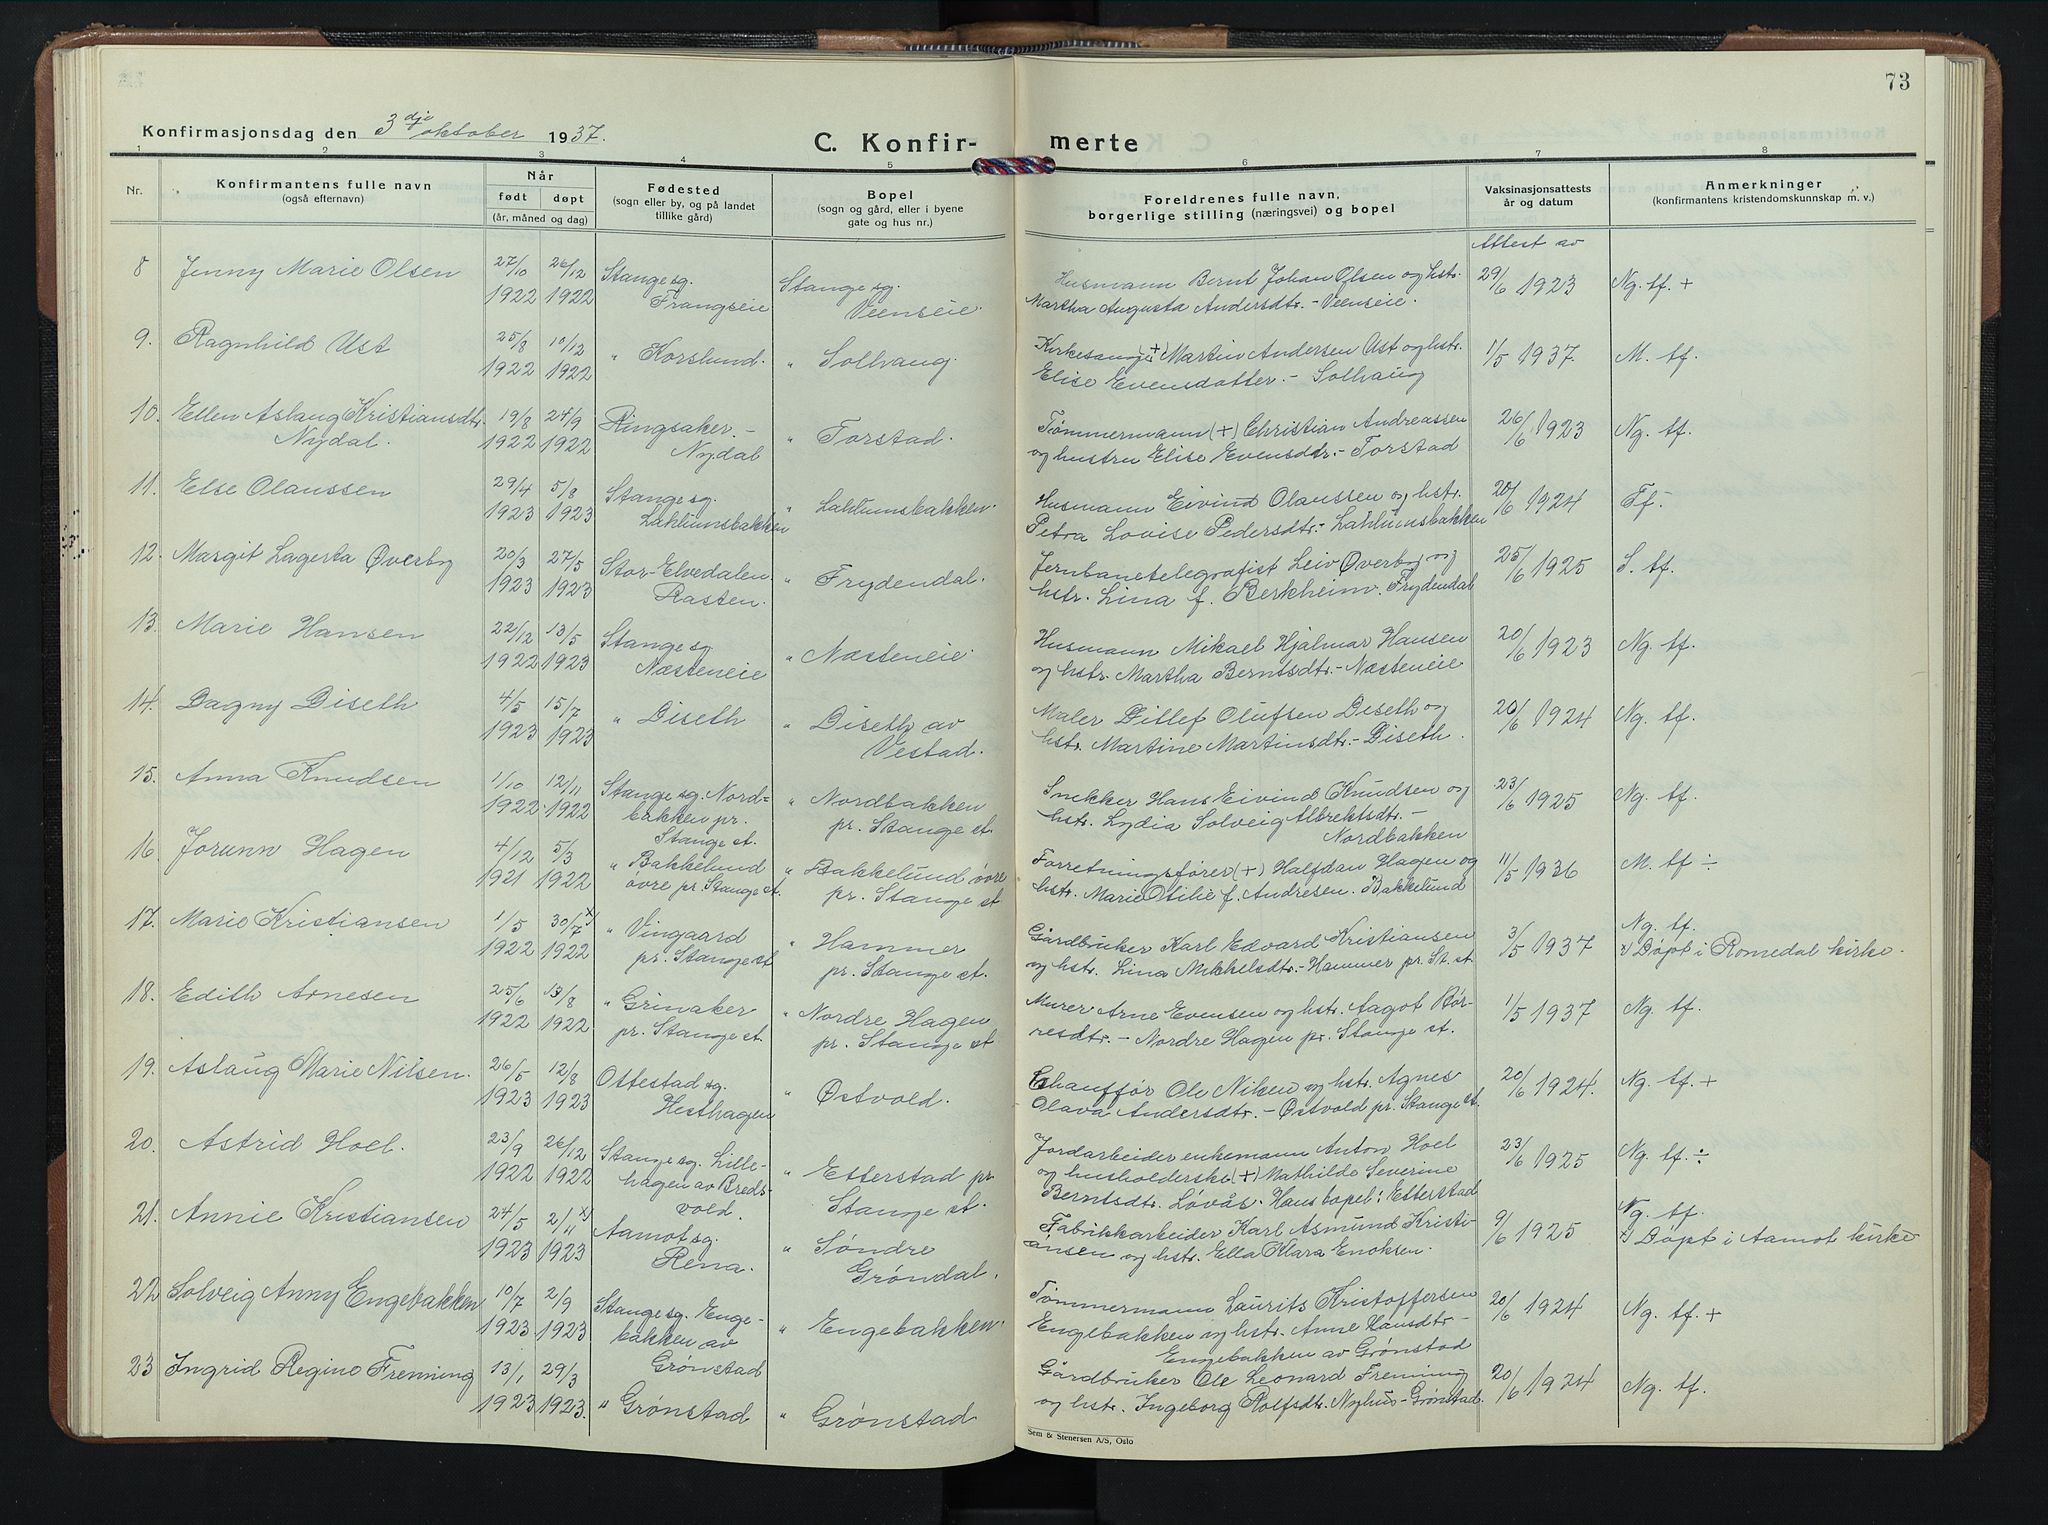 73
Konfirmasjonsdag den 3dje oktober 1937.
C. Konfir- merte
1 2 3 4 5 6 7 8
Nr.
Konfirmantens fulle navn
(også efternavn)
Når
født døpt
(år, måned og dag)
Fødested
(sogn eller by, og på landet
tillike gård)
Bopel
(sogn og gård, eller i byene
gate og hus nr.)
Foreldrenes fulle navn,
borgerlige stilling (næringsvei) og bopel
Vaksinasjonsattests
år og datum
Anmerkninger
(konfirmantens kristendomskunnskap m. v.)
Attest av
8 Jenny Marie Olsen 27/10 26/12 Stange sg. Stange sg. Husmann Bernt Johan Olsen og hstr. 29/6 1923 Ng. tf. +
1922 1922 Frangseie Veenseie. Martha Augusta Andersdtr. - Veenseie.
9. Ragnhild Ust 25/8 10/12 " Korslund. " Solhaug. Kirkesanger + Martin Andersen Ust og hstr. 1/5 1937. M. tf.
1922 1922 Elise Evensdatter. - Solhaug
10. Ellen Aslaug Kristiansdtr. 19/8 24/9 Ringsaker. - " Torstad. Tømmermann (+) Christian Andreassen 26/6 1923 Ng. tf.
Nydal. 1922 1922 Nydal og hustru Elise Evensdtr. - Torstad
11. Else Olaussen 29/4 5/8 Stange sg. " Lahlumsbakken. Husmann Eivind Olaussen og hstr. 20/6 1924 Tf. -
1923 1923 Lahlumsbakken Petra Lovise Pedersdtr. - Lahlumsbakken
12. Margit Lagerta Øverby 20/3 27/5 Stor-Elvedalen. " Frydendal. Jernbanetelegrafist Leiv Øverby og 25/6 1925 S. tf.
1923 1923 Rasten. hstr. Lina f. Berkheim. Frydendal
13. Marie Hansen 22/12 13/5 Stange sg. " Næsteneie. Husmann Mikael Hjalmar Hansen 20/6 1923 Ng. tf.
1922 1923 Næsteneie og hstr. Martha Berntsdtr. - Næsteneie
14. Dagny Diseth 4/5 15/7 " Diseth " Diseth av Maler Ditlef Olufsen Diseth og 20/6 1924 Ng. tf.
1923 1923 Vestad. hstr. Martine Martinsdtr. - Diseth.
15. Anna Knudsen 1/10 12/11 Stange sg. Nord= " Nordbakken Snekker Hans Eivind Knudsen og 23/6 1925 Ng. tf.
1922 1922 bakken pr. pr. Stange st. hstr. Lydia Solveig Albrektsdtr. -
Stange st. Nordbakken
16. Jorunn Hagen 4/12 5/3 " Bakkelund " Bakkelund øvre Forretningsfører (+) Halfdan Hagen og 11/5 1936 M. tf. ÷
1921 1922 øvre pr. Stange st. pr. Stange st hstr. Marie Otilie f. Andresen. Bakkelund
17. Marie Kristiansen 1/5 30/7 x) " Vingaard " Hammer Gårdbruker Karl Edvard Kristiansen 3/5 1937 Ng. tf.
1922 1922 pr. Stange st pr. Stange st. og hstr. Lina Mikkelsdtr. - Hammer pr. St. st x) Døpt i Romedal kirke.
18. Edith Arnesen 25/6 13/8 " Grinaker " Nordre Hagen Murer Arne Evensen og hstr. Aagot Bør- 1/5 1937 Ng. tf.
1922 1922 pr. Stange st. pr. Stange st resdtr. - Nordre Hagen pr. Stange st.
19. Aslaug Marie Nilsen. 26/5 12/8 Ottestad sg. " Østvold. Chauffør Ole Nilsen og hstr. Agnes 20/6 1924. Ng. tf. +
1923 1923 Hesthagen Olava Andersdtr. - Østvold pr. Stange st.
20. Astrid Hoel. 23/9 26/12 Stange sg. Lille- " Etterstad pr Jordarbeider enkemann Anton Hoel 23/6 1925 Ng. tf. ÷
1922 1922 hagen av Breds- Stange st. og husholderske (+) Mathilde Severine
vold. Berntsdtr. Løvås. Hans bopel: Etterstad
21. Annie Kristiansen 24/5 2/11 x) Aamot sg. " Søndre Fabrikkarbeider Karl Asmund Kristi- 9/6 1925 Ng. tf.
1923 1923 Rena. Grøndal. ansen og hstr. Ella Klara Enoksen. x) Døpt i Aamot kirke
22 Solveig Anny Engebakken 10/7 2/9 Stange sg. Enge- " Engebakken. Tømmermann Laurits Kristoffersen 20/6 1924 Ng. tf. +
1923 1923 bakken av Engebakken og hstr. Anne Hansdtr. -
Grønstad Engebakken av Grønstad
23 Ingrid Regine Frenning 13/1 29/3 " Grønstad " Grønstad Gårdbruker Ole Leonard Frenning 20/6 1924 Ng. tf.
1923 1923. og hstr. Ingeborg Rolfsdtr. Nyhus - Grønstad.
Sem & Stenersen A/S, Oslo